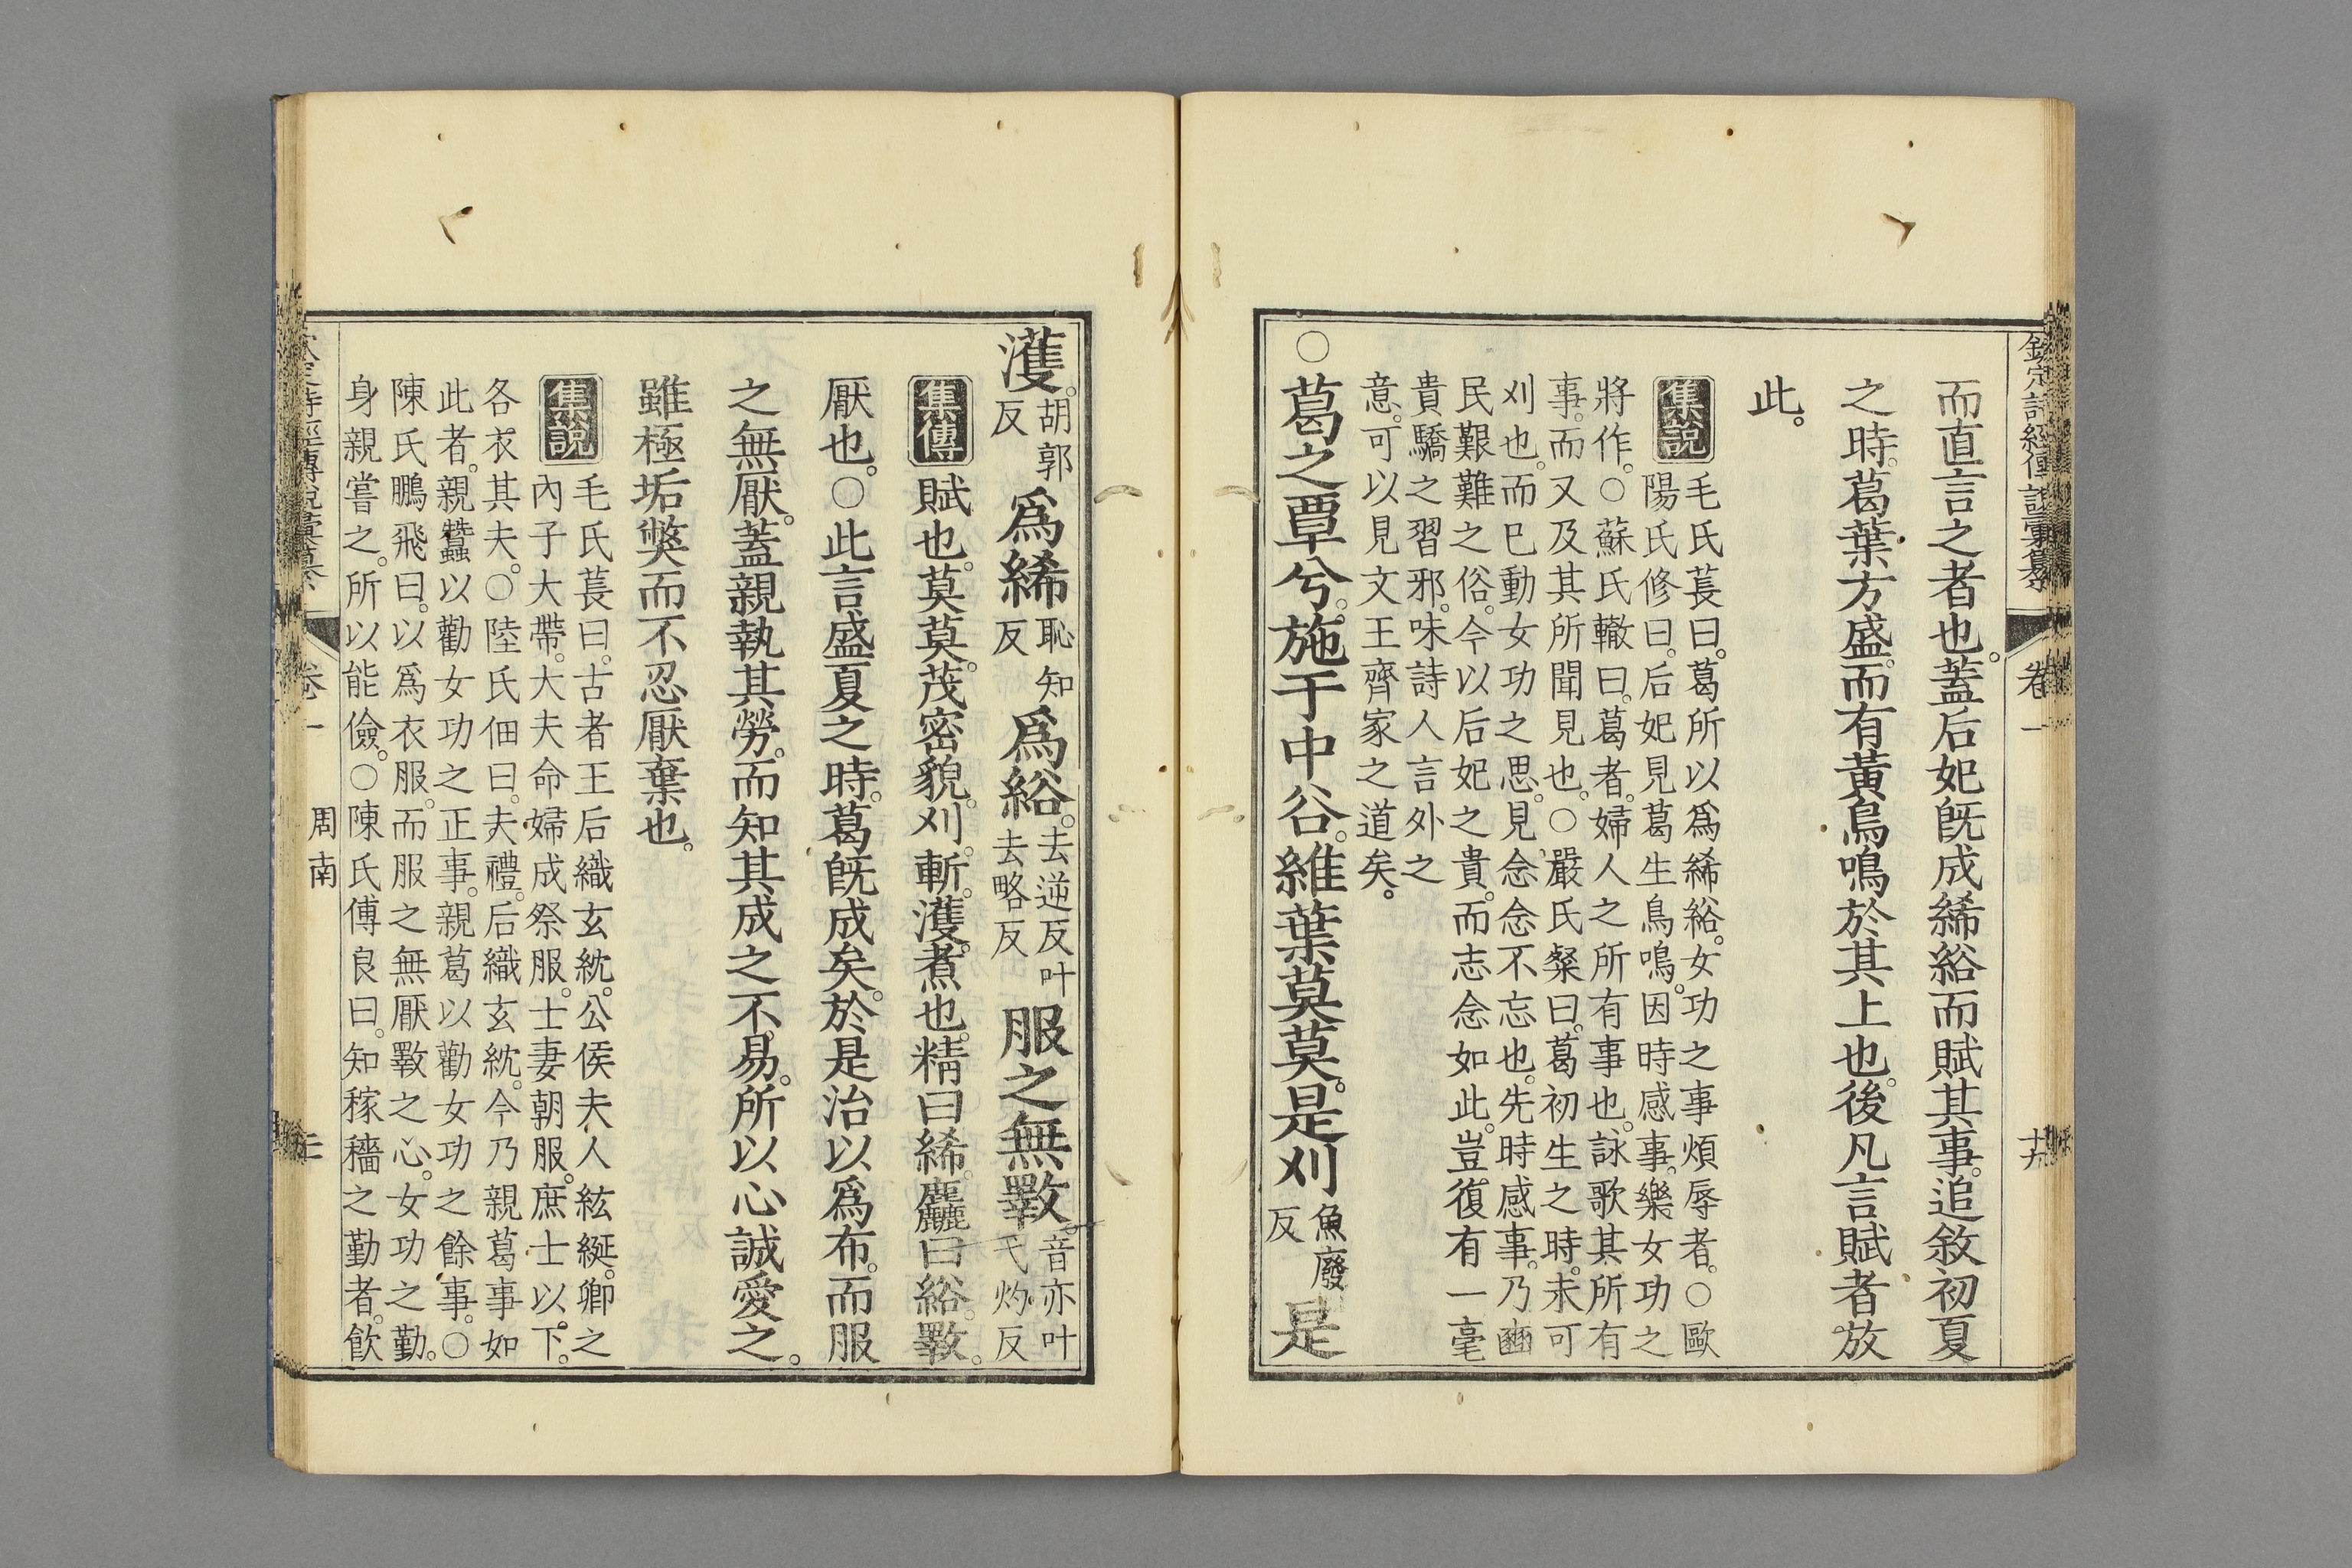 欽定詩經傳說彙纂 卷一
而直言之者也。蓋后妃旣成絺綌而賦其事。追敘初夏
之時。葛葉方盛。而有黃鳥鳴於其上也。後凡言賦者放
此。
集說
毛氏萇曰。葛所以爲絺綌。女功之事煩辱者。○歐
陽氏修曰。后妃見葛生鳥鳴。因時感事。樂女功之
將作。○蘇氏轍曰。葛者。婦人之所有事也。詠歌其所有
事。而又及其所聞見也。○嚴氏粲曰。葛初生之時。未可
刈也。而已動女功之思。見念念不忘也。先時感事。乃豳
民艱難之俗。今以后妃之貴。而志念如此。豈復有一毫
貴驕之習邪。味詩人言外之
意。可以見文王齊家之道矣。
○葛之覃兮。施于中谷。維葉莫莫。是刈魚廢反是
濩。胡郭反爲絺恥知反爲綌。去逆反叶去略反服之無斁。音亦叶弋灼反
集傳 賦也。莫莫。茂密貌。刈。斬。濩。煮也。精曰絺。麤曰綌。斁。
厭也。○此言盛夏之時。葛旣成矣。於是治以爲布。而服
之無厭。蓋親執其勞。而知其成之不易。所以心誠愛之。
雖極垢獘而不忍厭棄也。
集說
毛氏萇曰。古者王后織玄紞。公侯夫人紘綖。卿之
內子大帶。大夫命婦成祭服。士妻朝服。庶士以下。
各衣其夫。○陸氏佃曰。夫禮。后織玄紞。今乃親葛事如
此者。親蠶以勸女功之正事。親葛以勸女功之餘事。○
陳氏鵬飛曰。以爲衣服。而服之無厭斁之心。女功之勤。
身親嘗之。所以能儉。○陳氏傅良曰。知稼穡之勤者。飮
周南
卷一